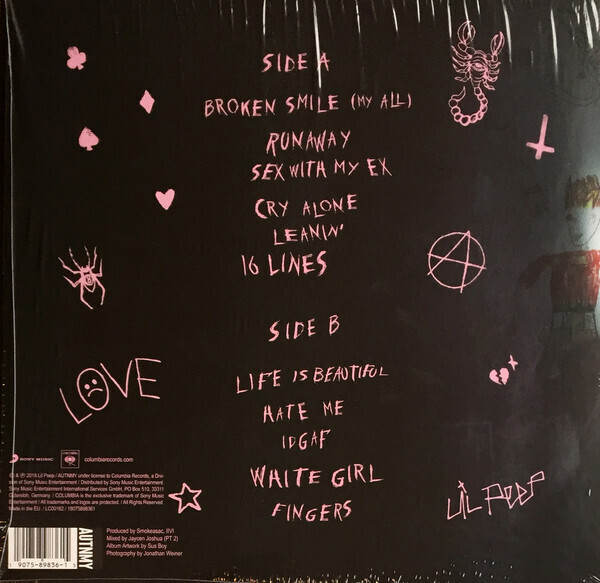 SIDE A
BROKEN SMILE (MY ALL)
RUNAWAY
SEX WITH MY EX
CRY ALONE
LEANIN'
16 LINES
SIDE B
LIFE IS BEAUTIFUL
HATE ME
IDGAF
WHITE GIRL
FINGERS
LOVE
LIL PEEP
SONY MUSIC
columbiarecords.com
℗ & © 2018 Lil Peep / AUTNMY under license to Columbia Records, a Divi-
sion of Sony Music Entertainment / Distributed by Sony Music Entertainment.
Sony Music Entertainment International Services GmbH, PO Box 510, 33311
Gütersloh, Germany. / COLUMBIA is the exclusive trademark of Sony Music
Entertainment / All trademarks and logos are protected. / All Rights Reserved.
Made in the EU. / LC00162 / 19075898361
AUTNMY
Produced by Smokeasac, IIVI
Mixed by Jaycen Joshua (PT 2)
Album Artwork by Sus Boy
Photography by Jonathan Weiner
9075-89836-1